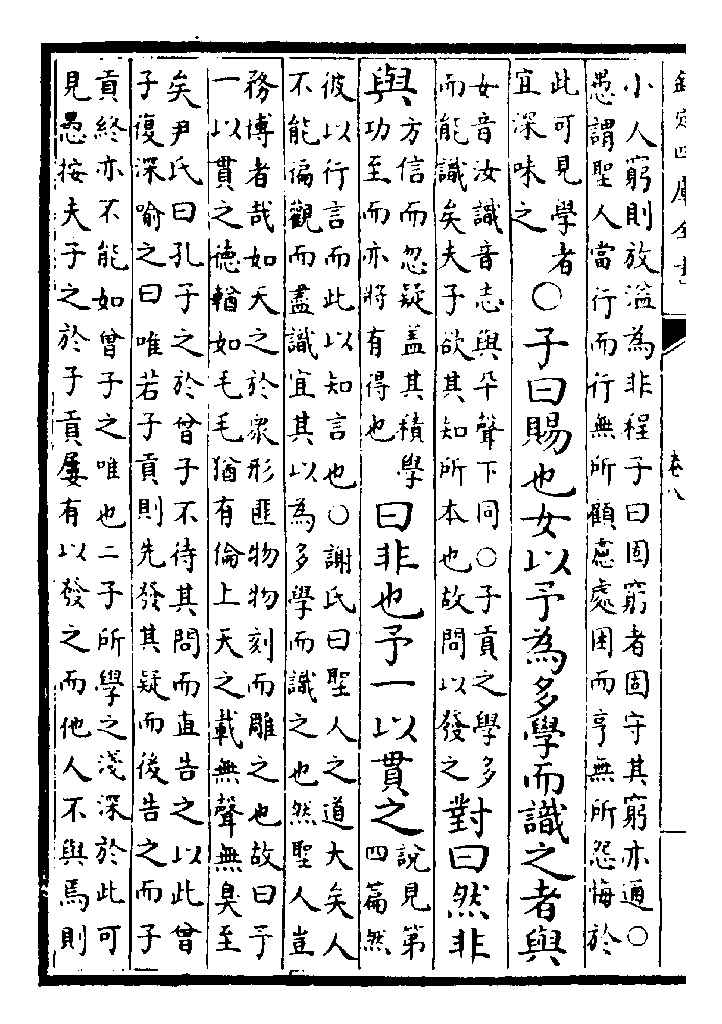 欽定四庫全書 卷八
小人窮則放溢為非程子曰固窮者固守其窮亦通○
愚謂聖人當行而行無所顧慮處困而亨無所怨悔於
此可見學者
宜深味之
○子曰賜也女以予為多學而識之者與
女音汝識音志與平聲下同○子貢之學多
而能識矣夫子欲其知所本也故問以發之
對曰然非
與
方信而忽疑盖其積學
功至而亦將有得也
曰非也予一以貫之
說見第
四篇然
彼以行言而此以知言也○謝氏曰聖人之道大矣人
不能偏觀而盡識宜其以為多學而識之也然聖人豈
務博者哉如天之於衆形匪物物刻而雕之也故曰予
一以貫之德輶如毛毛猶有倫上天之載無聲無臭至
矣尹氏曰孔子之於曾子不待其問而直告之以此曾
子復深喻之曰唯若子貢則先發其疑而後告之而子
貢終亦不能如曾子之唯也二子所學之淺深於此可
見愚按夫子之於子貢屢有以發之而他人不與焉則